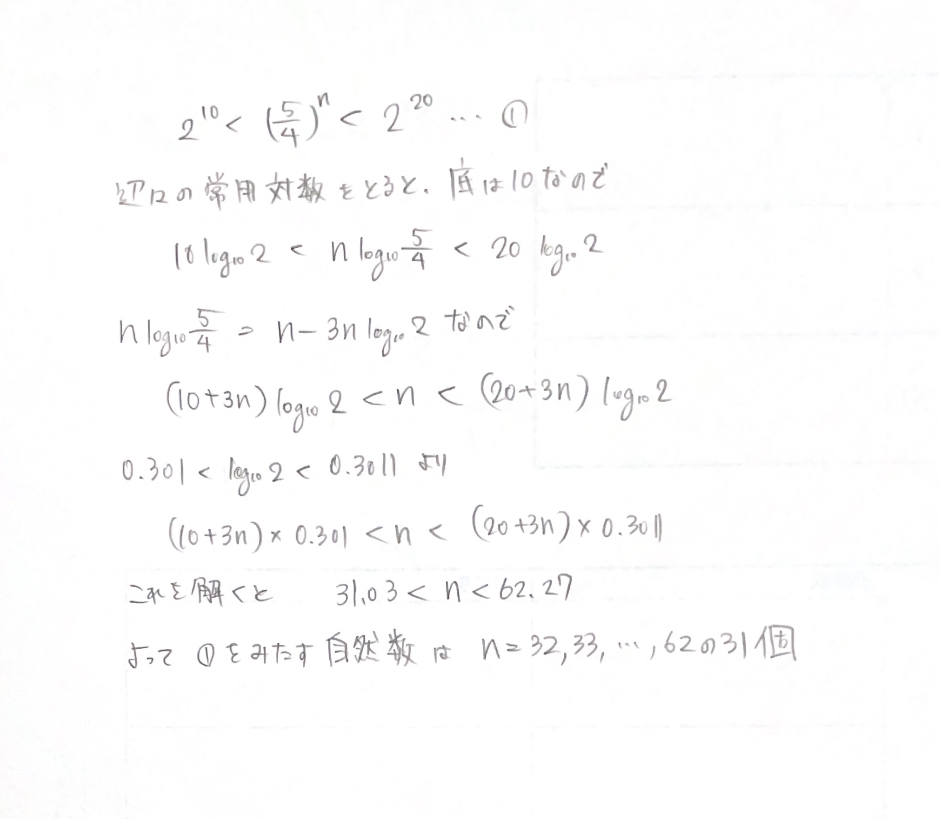 2^10 < (5/4)^n < 2^20 … ①
辺々の常用対数をとると、底は10なので
10 log₁₀ 2 < n log₁₀ 5/4 < 20 log₁₀ 2
n log₁₀ 5/4 = n − 3n log₁₀ 2 なので
(10+3n) log₁₀ 2 < n < (20+3n) log₁₀ 2
0.301 < log₁₀ 2 < 0.3011 より
(10+3n) × 0.301 < n < (20+3n) × 0.3011
これを解くと 31.03 < n < 62.27
よって ① をみたす自然数は n = 32, 33, …, 62の31個